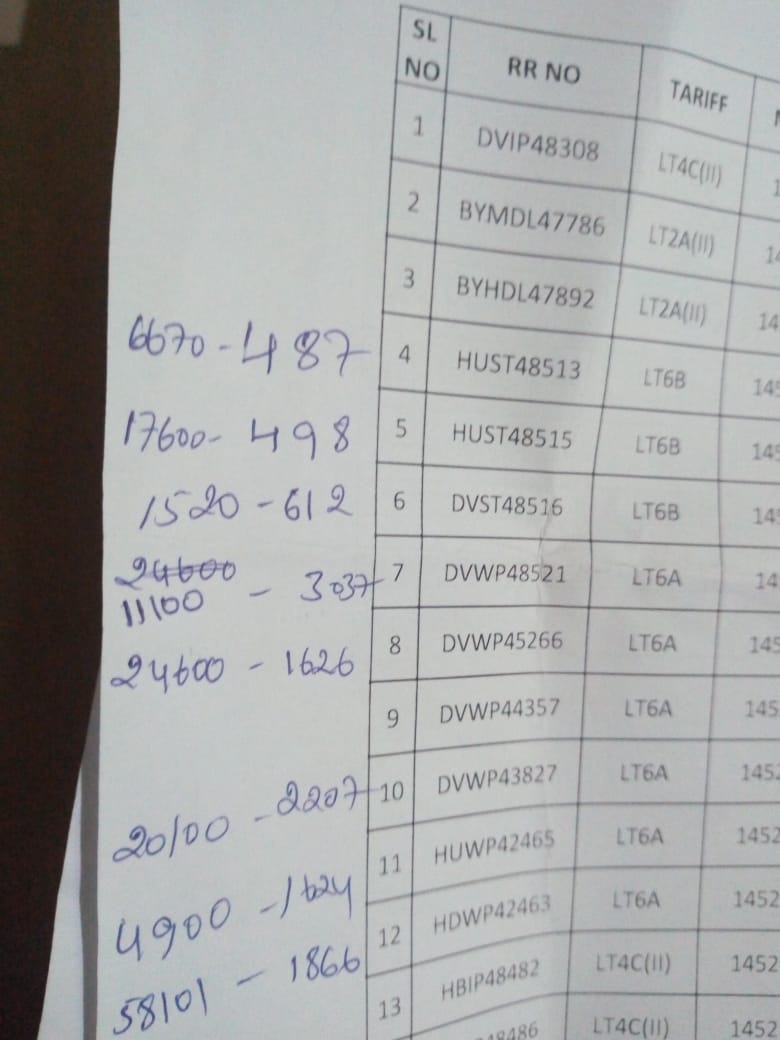 SL NO RR NO TARIFF
1 DVIP48308 LT4C(II)
2 BYMDL47786 LT2A(II) 14
3 BYHDL47892 LT2A(II) 14
6670 - 487 4 HUST48513 LT6B 145
17600 - 498 5 HUST48515 LT6B 145
1520 - 612 6 DVST48516 LT6B 14
24600
11100 - 3037 7 DVWP48521 LT6A 14
24600 - 1626 8 DVWP45266 LT6A 145
9 DVWP44357 LT6A 145
20100 - 2207 10 DVWP43827 LT6A 1452
4900 - 1624 11 HUWP42465 LT6A 1452
58101 - 1866 12 HDWP42463 LT6A 1452
13 HBIP48482 LT4C(II) 1452
48486 LT4C(II) 1452